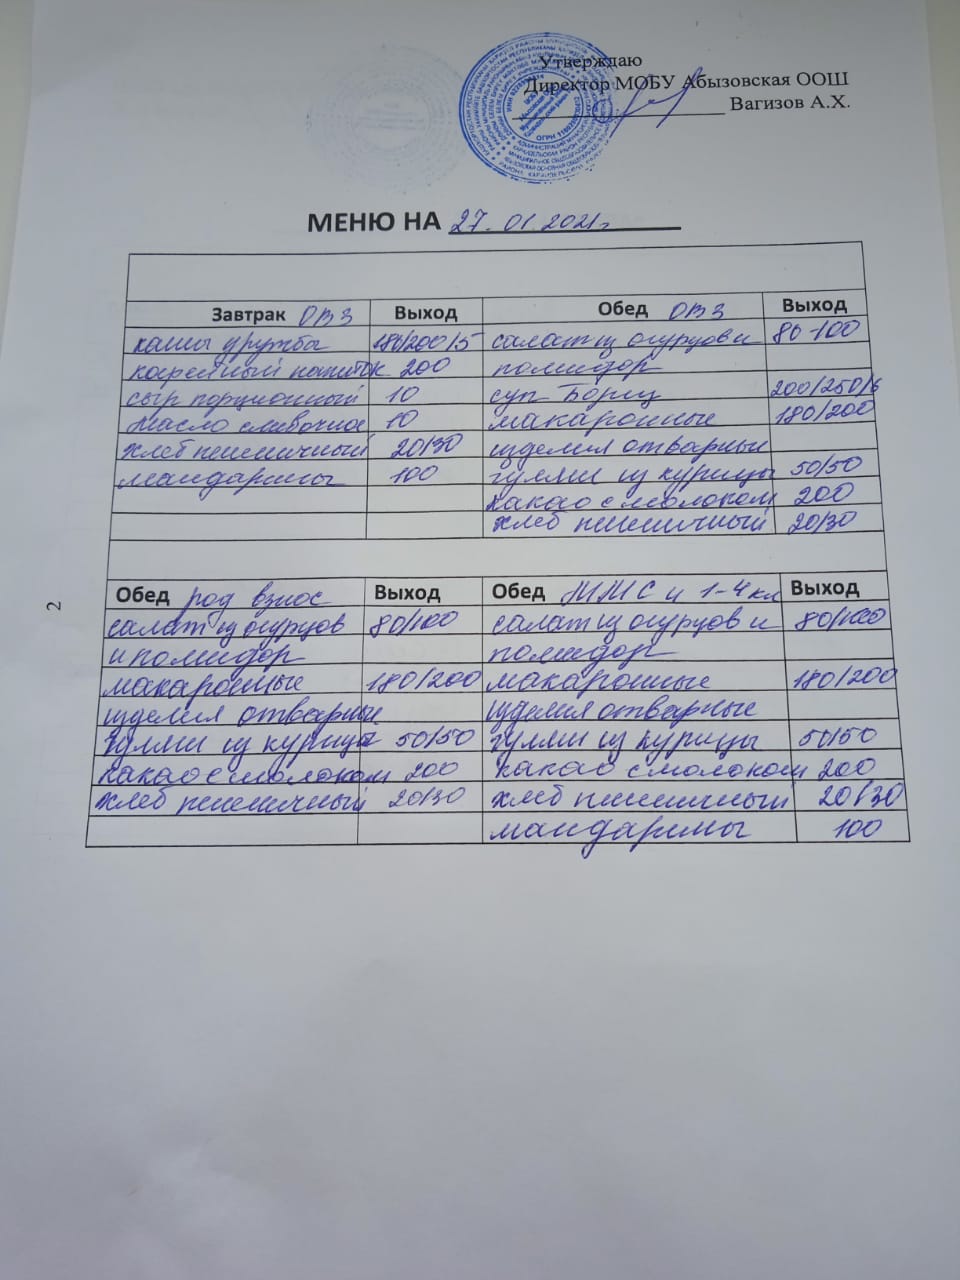 Утверждаю
Директор МОБУ Абызовская ООШ
Вагизов А.Х.
МЕНЮ НА 27.01.2021г
Завтрак ОВЗ Выход Обед ОВЗ Выход
каша дружба 180/200/5 салат из огурцов и 80-100
кофейный напиток 200 помидор
сыр порционный 10 суп Борщ 200/250/6
масло сливочное 10 макаронные 180/200
хлеб пшеничный 20/30 изделия отварные
мандарины 100 гуляш из курицы 50/50
какао с молоком 200
хлеб пшеничный 20/30
2
Обед род взнос Выход Обед ММС и 1-4 кл Выход
салат из огурцов 80/100 салат из огурцов и 80/100
и помидор помидор
макаронные 180/200 макаронные 180/200
изделия отварные изделия отварные
гуляш из курицы 50/50 гуляш из курицы 50/50
какао с молоком 200 какао с молоком 200
хлеб пшеничный 20/30 хлеб пшеничный 20/30
мандарины 100